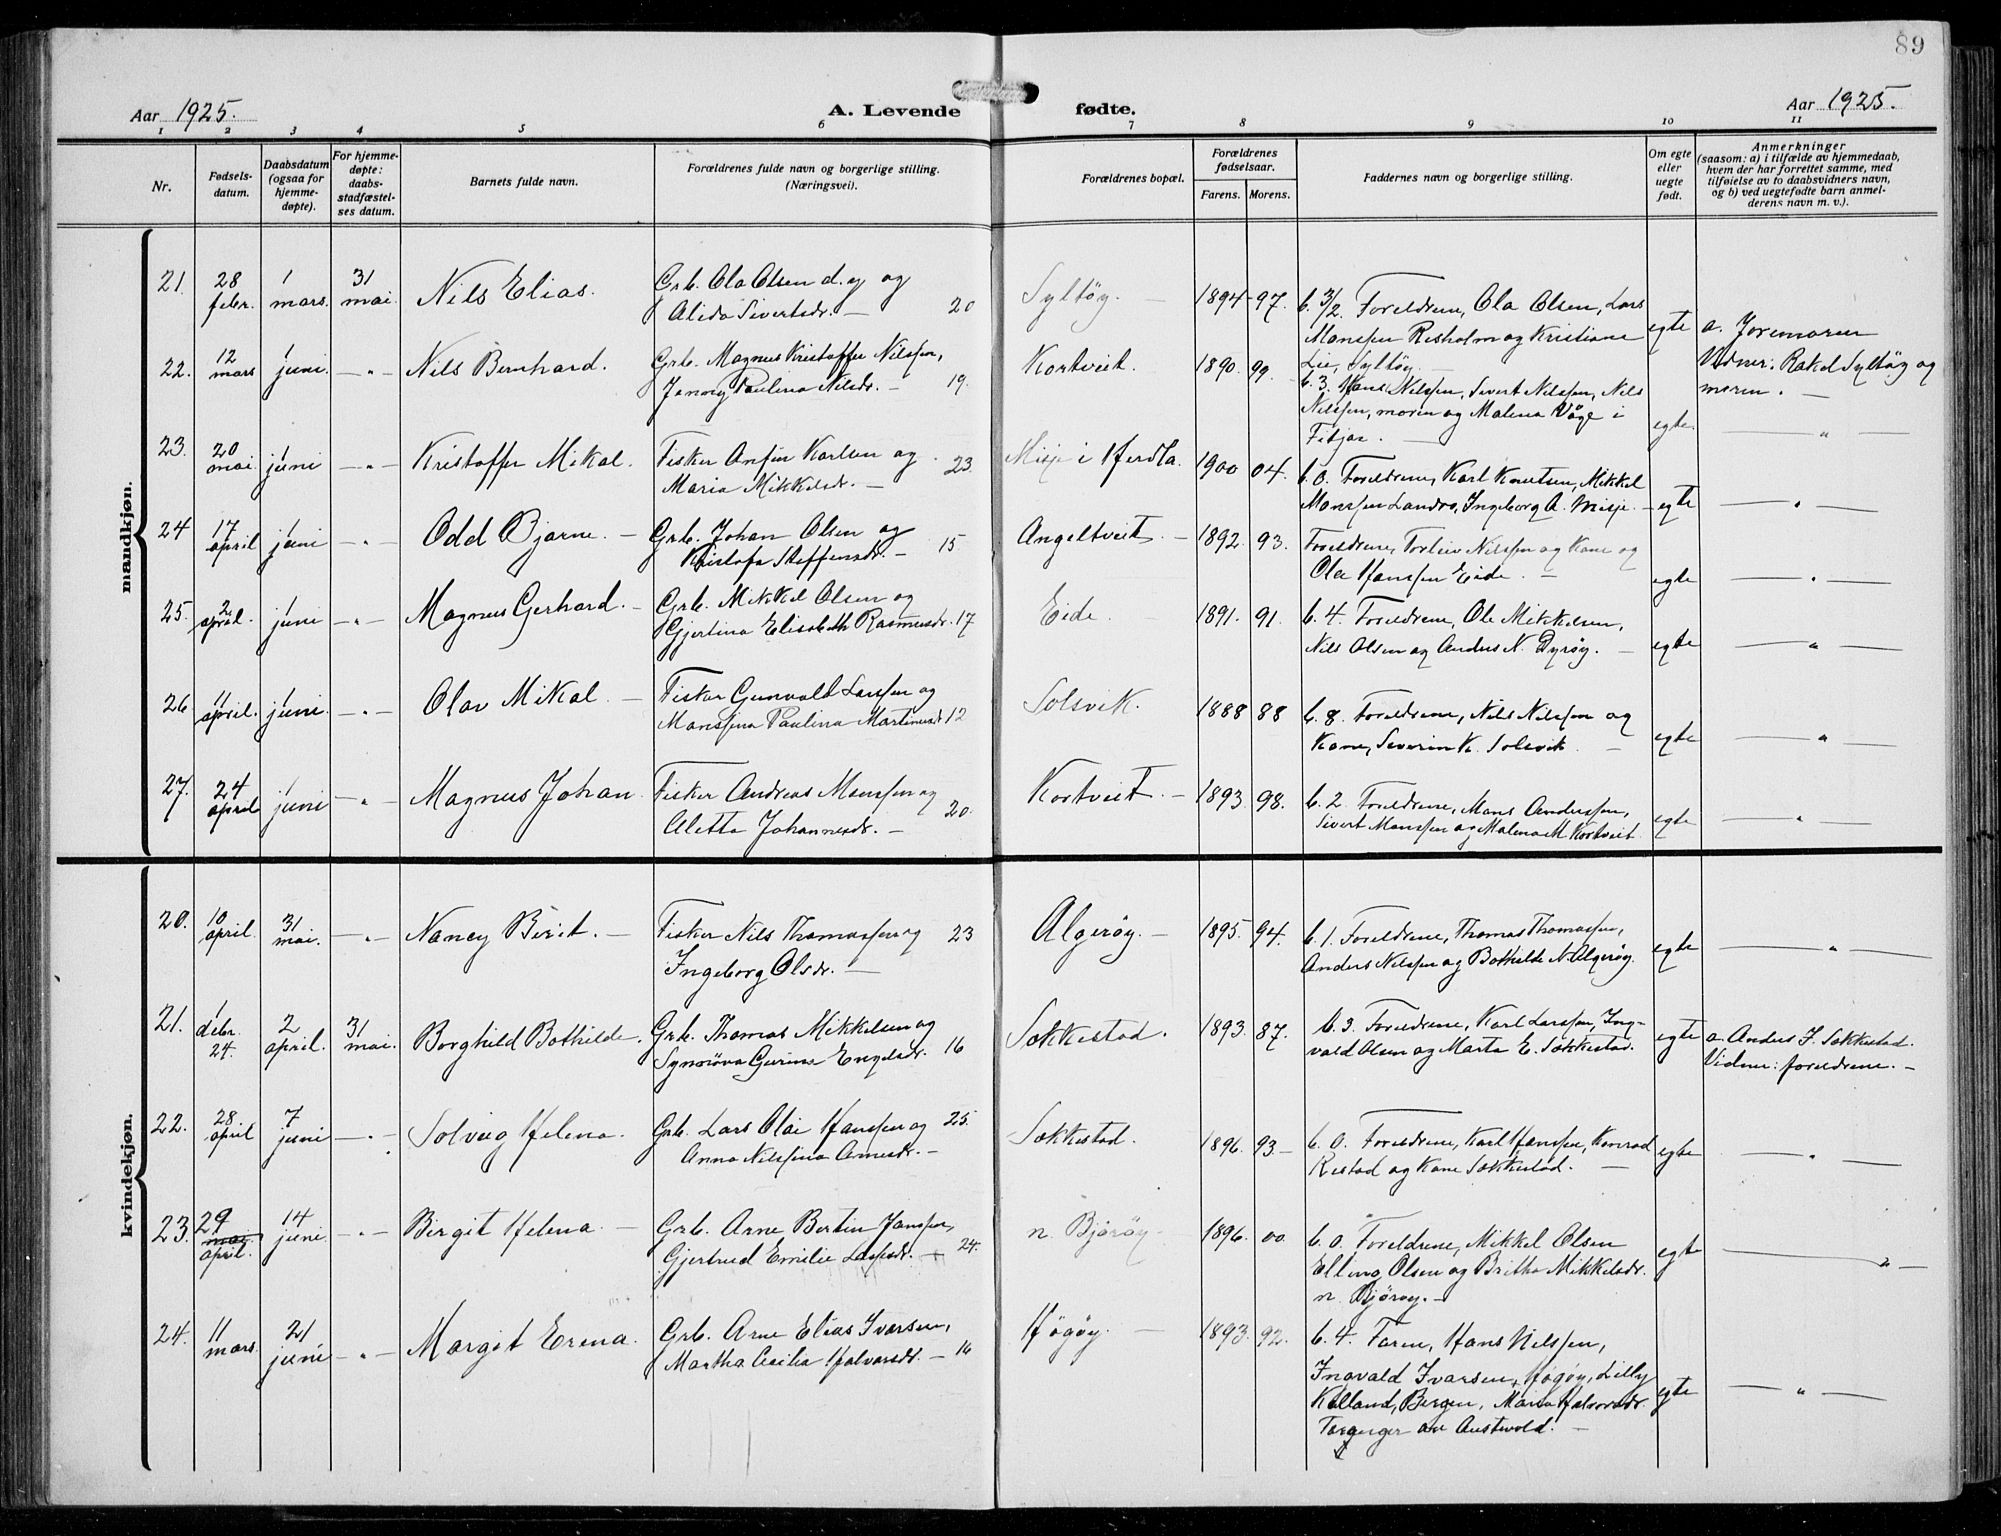 89
Aar 1925.
A. Levende fødte.
Aar 1925.
1 2 3 4 5 6 7 8 9 10 11
Nr.
Fødsels-
datum.
Daabsdatum
(ogsaa for
hjemme-
døpte).
For hjemme-
døpte:
daabs-
stadfæstel-
ses datum.
Barnets fulde navn.
Forældrenes fulde navn og borgerlige stilling.
(Næringsvei).
Forældrenes bopæl.
Forældrenes
fødselsaar.
Farens. Morens.
Faddernes navn og borgerlige stilling.
Om egte
eller
uegte
født.
Anmerkninger
(saasom: a) i tilfælde av hjemmedaab,
hvem der har forrettet samme, med
tilføielse av to daabsvidners navn,
og b) ved uegtefødte barn anmel-
derens navn m. v.).
mandkjøn.
21. 28 febr. 1 mars. 31 mai. Nils Elias. Grb. Ola Olsen d. y og
Alida Sivertsdr. — 20 Syltøy. — 1894 - 97. b. 3/2. Foreldrene, Ola Olsen, Lars
Monssen Risholm og Kristiane
Lie, Syltøy. egte a. Jormoren
Vidner: Rakel Syltøy og
moren. —
22. 12 mars 1 juni. — " — Nils Bernhard. Grb. Magnus Kristoffer Nilssen,
Jenny Paulina Nilsdr. — 19. Kortveit. 1890. 99. b. 3. Hans Nilssen, Sivert Nilssen, Nils
Nilssen, moren og Malena Våge i
Fitjar. — egte. — " —
23. 20 mai 1 juni — " — Kristoffer Mikal. Fisker Anfin Karlsen og
Maria Mikkelsdr. — 23. Misje i Herdla. 1900 04. b. 0. Foreldrene, Karl Knutsen, Mikkel
Monssen Landro, Ingeborg A. Misje. — egte — " —
24 17 april 1 juni — " — Odd Bjarne. — Grb. Johan Olsen og
Kristofa Steffensdr. — 15 Angeltveit. — 1892. 93. Foreldrene, Torleiv Nilssen og Kone og
Ole Hanssen Eide. — egte — " —
25. 2 april. 1 juni — " — Magnus Gerhard. — Grb. Mikkel Olsen og
Gjertina Elisabeth Rasmusdr. 17 Eide. — 1891. 91. b. 4. Foreldrene, Ole Mikkelsen,
Nils Olsen og Anders N. Dyrøy. — egte — " —
26 11 april. 1 juni. — " — Olav Mikal — Fisker Gunvald Larssen og
Monssina Paulina Martinusdr 12 Solsvik. 1888 88 b. 8. Foreldrene, Nils Nilssen og
Kone, Severin K. Solsvik. — egte — " —
27. 24 april 1 juni — " — Magnus Johan Fisker Andreas Monssen og
Aletta Johannesdr. — 20. Kortveit. — 1893 98. b. 2. Foreldrene, Mons Anderssen,
Sivert Monssen og Malena M. Kortveit. egte — " —
kvindekjøn.
20. 10 april. 31 mai. — " — Nancy Berit. — Fisker Nils Thomassen og
Ingeborg Olsdr. — 23 Algerøy. — 1895. 94. b. 1. Foreldrene, Thomas Thomassen,
Anders Nilssen og Bothilde N. Algerøy. egte — " —
21. 1 debr. 24. 2 april. 31 mai. Borghild Bothilde. Grb. Thomas Mikkelsen og
Synnöva Gurine Engelsdr. 16 Sækkestad. 1893. 87. b. 3. Foreldrene, Karl Larssen, Ing-
vald Olsen og Marta E. Sækkestad. egte a. Anders J. Sækkestad.
Vidner: foreldrene. —
22. 28 april 7 juni — " — Solveig Helena. Grb. Lars Olai Hanssen og
Anna Nilssina Arnesdr. — 25. Sækkestad. 1896. 93. — b. 0. Foreldrene, Karl Hanssen, Konrad
Ristad og Kone Sækkestad. — egte — " —
23. 29 mai april. 14 juni — " — Birgit Helena. — Grb. Arne Bertin Janssen,
Gjertrud Emilie Larsdr. — 24. n. Bjørøy — 1896. 00. b. 0. Foreldrene, Mikkel Olsen
Elling Olsen og Britha Mikkelsdr.
n. Bjørøy. — egte — " —
24. 11 mars. 21 juni — " — Margit Erena. Grb. Arne Elias Ivarsen,
Martha Cecilia Halvorsdr. — 16 Høgøy. — 1893. 92. b. 4. Faren, Hans Nilssen,
Ingvald Ivarsen, Høgøy, Lilly
Kalland, Bergen, Maria Halvorsdr.
Torgeger av Austevold. — egte — " —